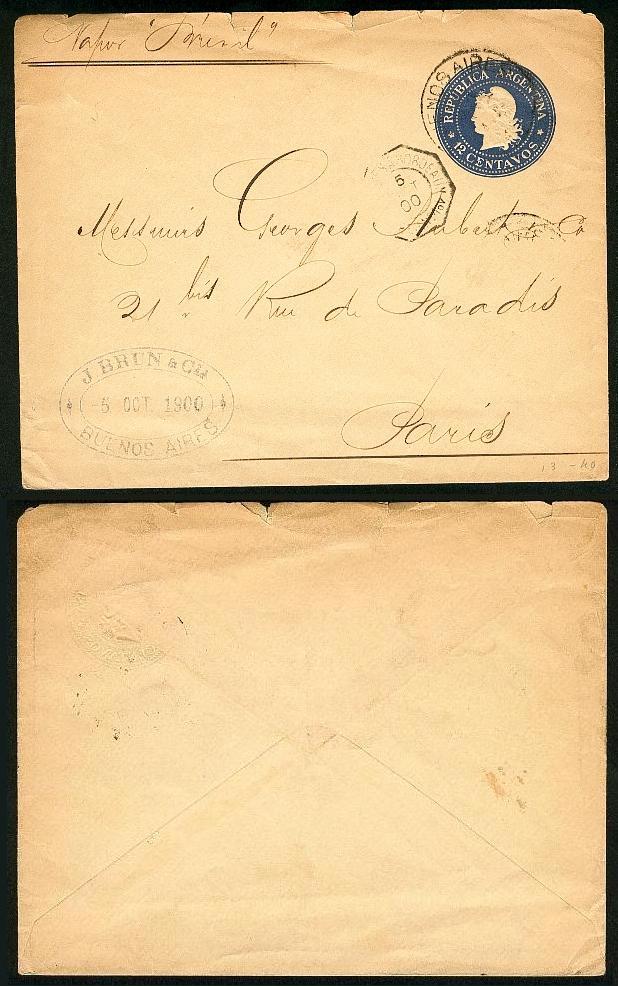 Vapor "Brésil"
BUENOS AIRES
REPUBLICA ARGENTINA
12 CENTAVOS
BORDEAUX
5
00
Messieurs Georges Aubert & Co
21 bis Rue de Paradis
Paris
J. BRUN & Cía
(-5 OCT. 1900)
BUENOS AIRES
13-40